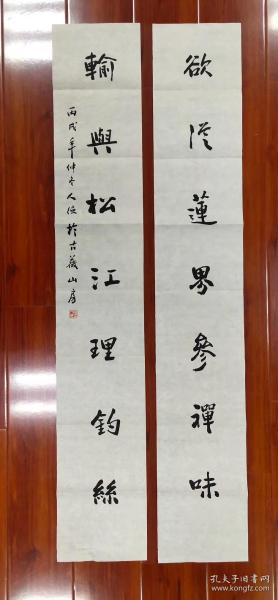 欲從蓮界參禪味
輸與松江理釣絲
丙戌年仲冬人俊於古薇山房
孔夫子旧书网